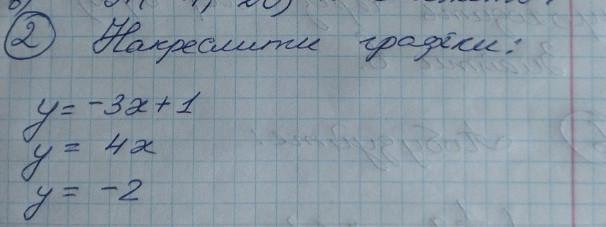 ② Накреслити графіки:
y = -3x + 1
y = 4x
y = -2